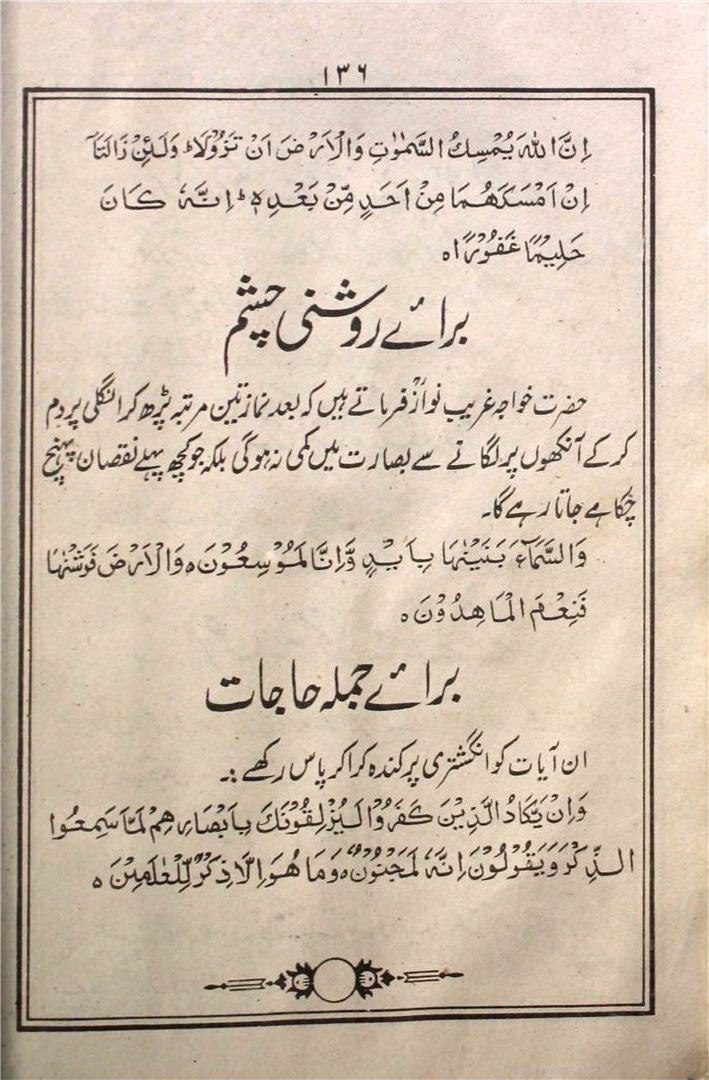 ۱۳۶
اِنَّ اللهَ يُمْسِكُ السَّمٰوٰتِ وَالْاَرْضَ اَنْ تَزُوْلَا ۚ وَلَئِنْ زَالَتَآ
اِنْ اَمْسَكَهُمَا مِنْ اَحَدٍ مِّنْ بَعْدِهٖ ؕ اِنَّهٗ كَانَ
حَلِيْمًا غَفُوْرًا ه
برائے روشنی چشم
حضرت خواجہ غریب نوازؒ فرماتے ہیں کہ بعد نماز تین مرتبہ پڑھ کر انگلی پر دم
کر کے آنکھوں پر لگانے سے بصارت میں کمی نہ ہوگی بلکہ جو کچھ پہلے نقصان پہنچ
چکا ہے جاتا رہے گا۔
وَالسَّمَآءَ بَنَيْنٰهَا بِاَيْدٍ وَّاِنَّا لَمُوْسِعُوْنَ ه وَالْاَرْضَ فَرَشْنٰهَا
فَنِعْمَ الْمَاهِدُوْنَ ه
برائے جملہ حاجات
ان آیات کو انگشتری پر کندہ کرا کر پاس رکھے :۔
وَاِنْ يَّكَادُ الَّذِيْنَ كَفَرُوْا لَيُزْلِقُوْنَكَ بِاَبْصَارِهِمْ لَمَّا سَمِعُوا
الذِّكْرَ وَيَقُوْلُوْنَ اِنَّهٗ لَمَجْنُوْنٌ ه وَمَا هُوَ اِلَّا ذِكْرٌ لِّلْعٰلَمِيْنَ ه